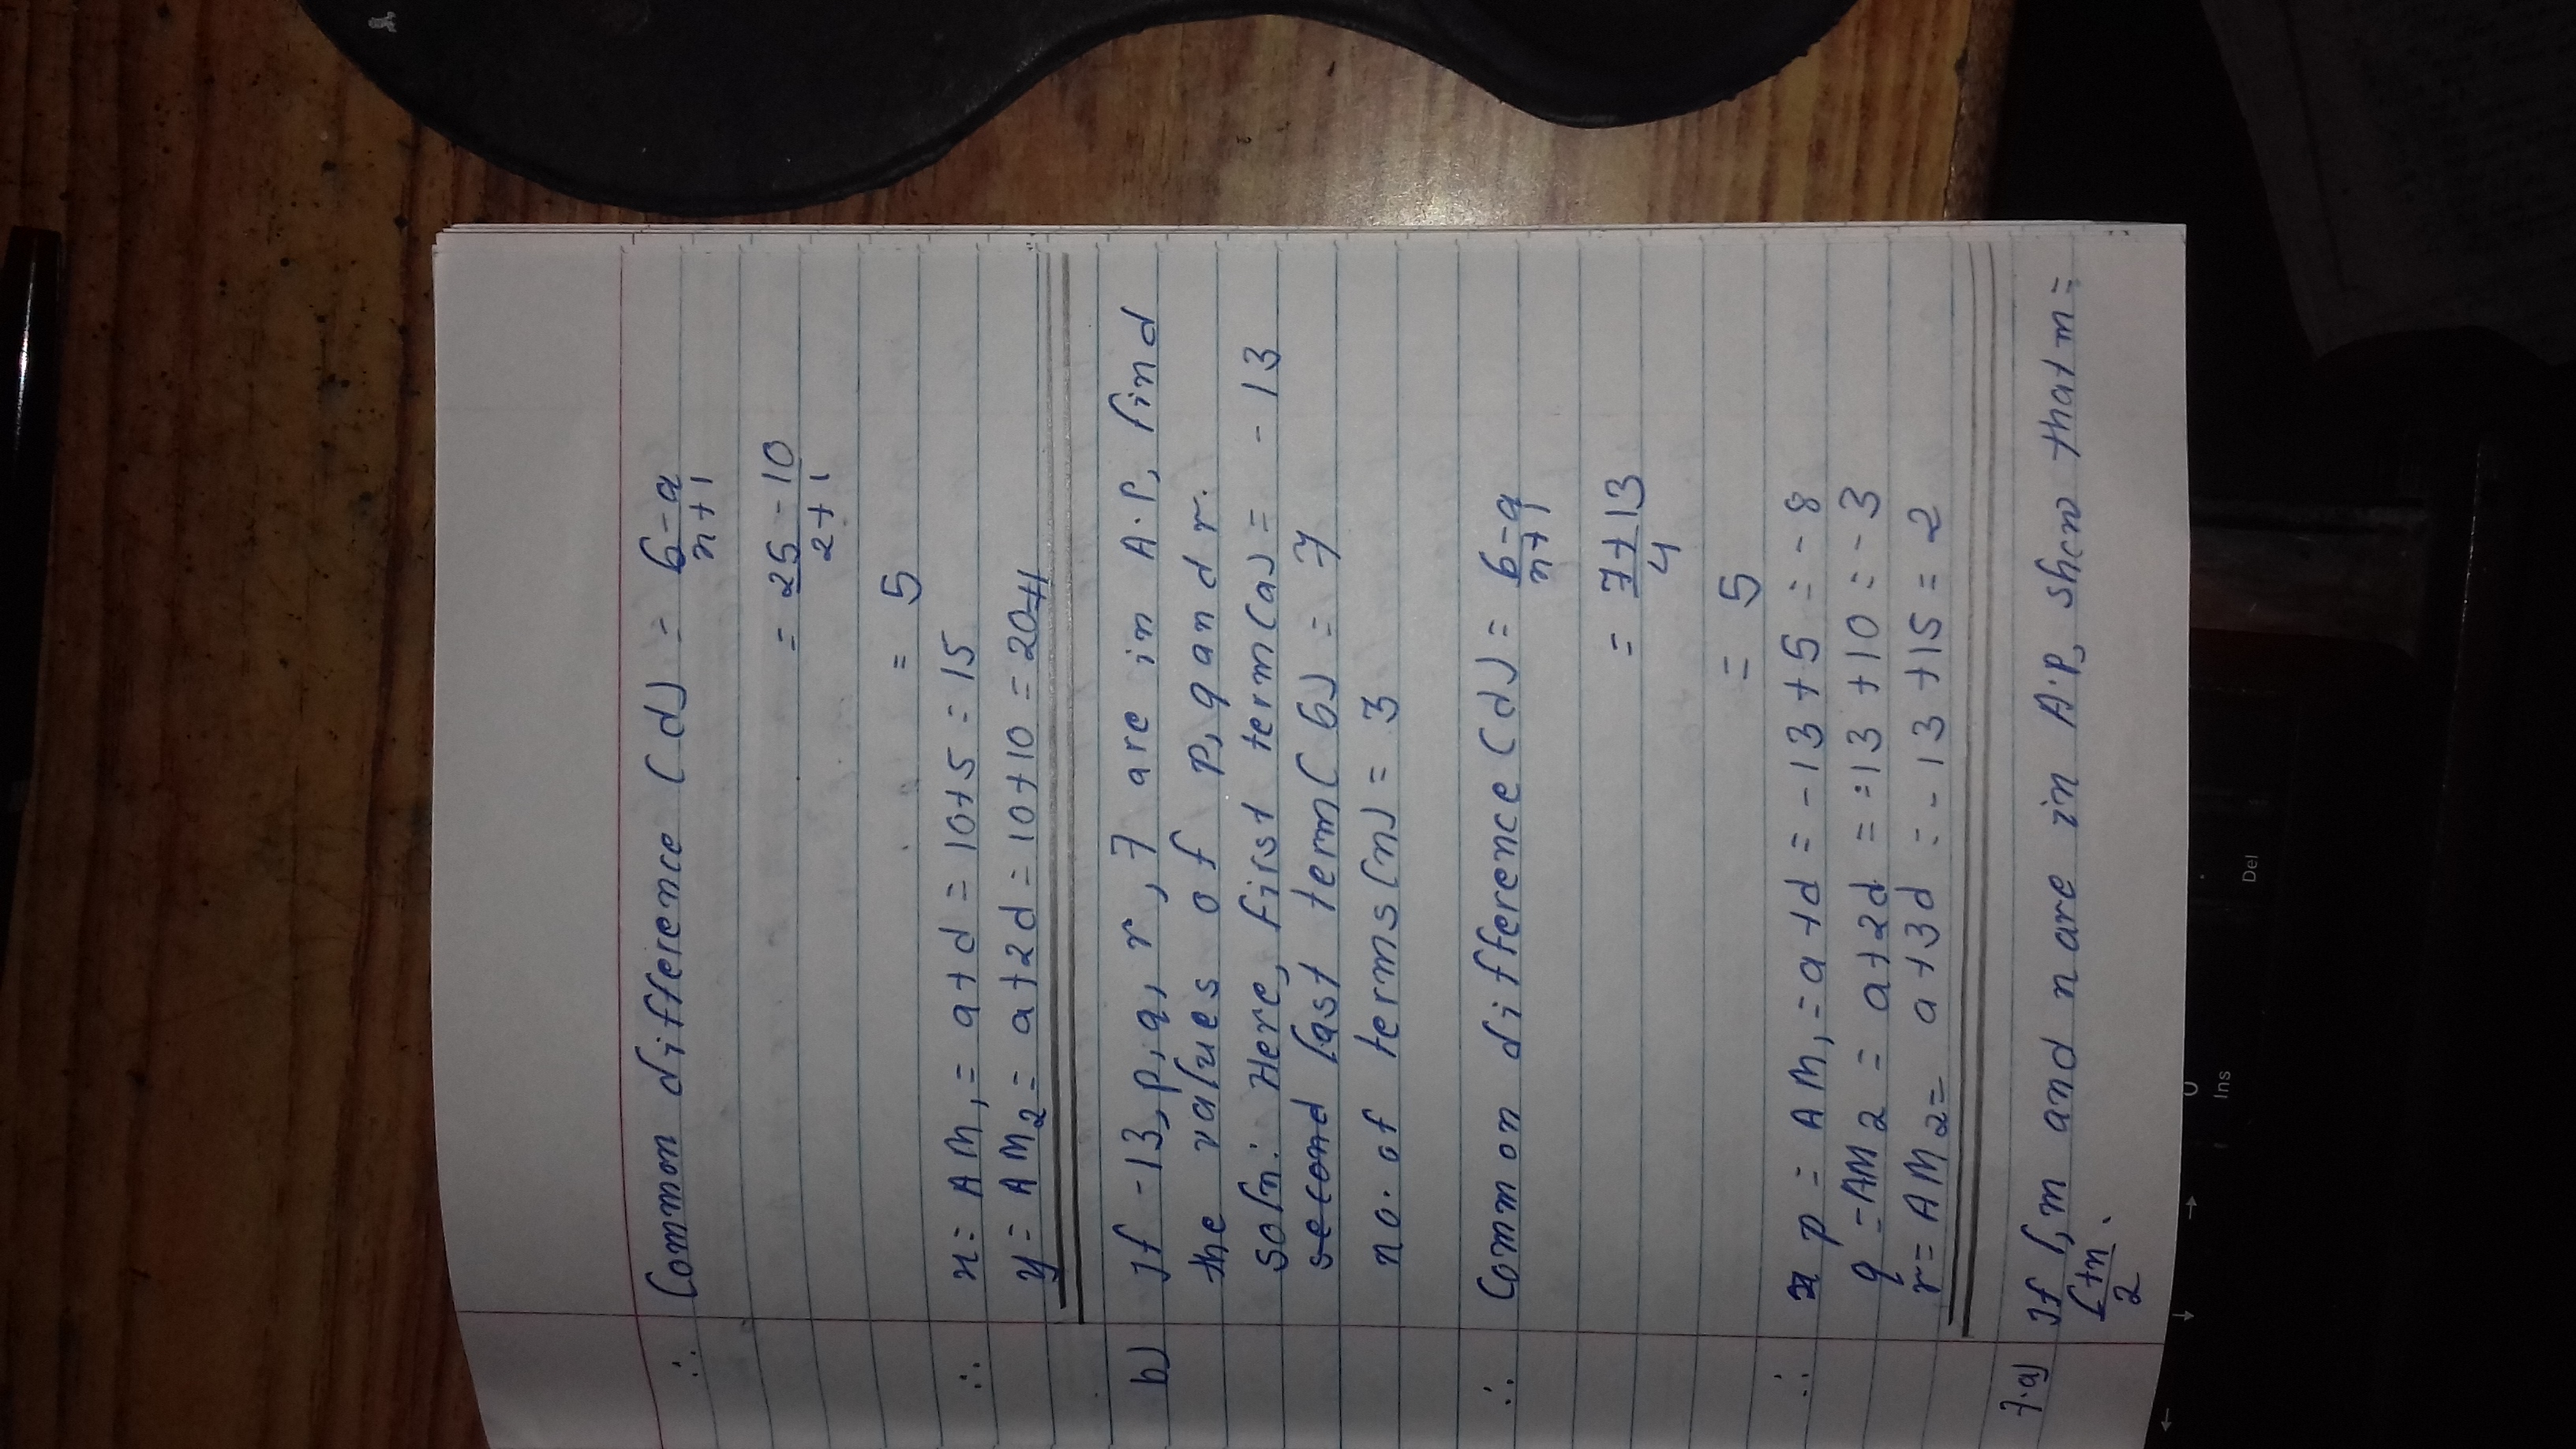 ∴ Common difference (d) = b-a/n+1
= 25-10/2+1
= 5
∴ x = AM₁ = a+d = 10+5 = 15
y = AM₂ = a+2d = 10+10 = 20
b) If -13, p, q, r, 7 are in A.P, find
the values of p, q and r.
Soln: Here, first term (a) = -13
second last term (b) = 7
no. of terms (n) = 3
∴ Common difference (d) = b-a/n+1
= 7+13/4
= 5
∴ p = AM₁ = a+d = -13+5 = -8
q = AM₂ = a+2d = -13+10 = -3
r = AM₂ = a+3d = -13+15 = 2
7.a) If l, m and n are in A.P, show that m =
l+n/2.
Del
Ins